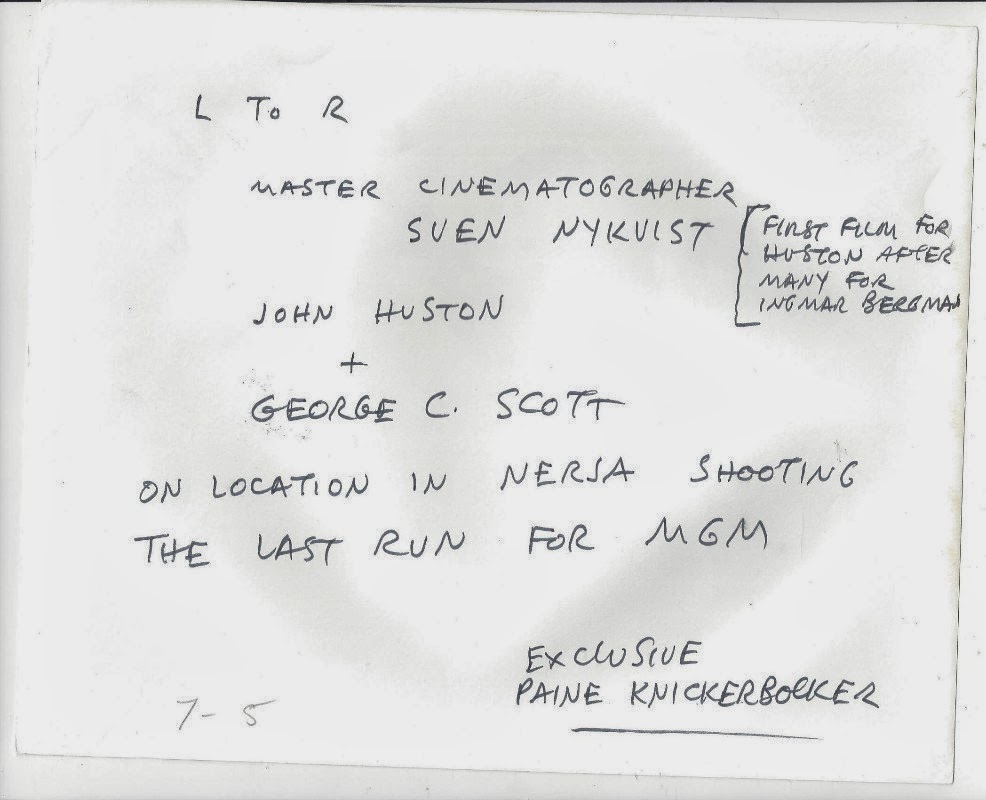 L To R
MASTER CINEMATOGRAPHER
SVEN NYKVIST
[FIRST FILM FOR
HUSTON AFTER
MANY FOR
INGMAR BERGMAN
JOHN HUSTON
+
GEORGE C. SCOTT
ON LOCATION IN NERJA SHOOTING
THE LAST RUN FOR MGM
EXCLUSIVE
PAINE KNICKERBOCKER
7-5